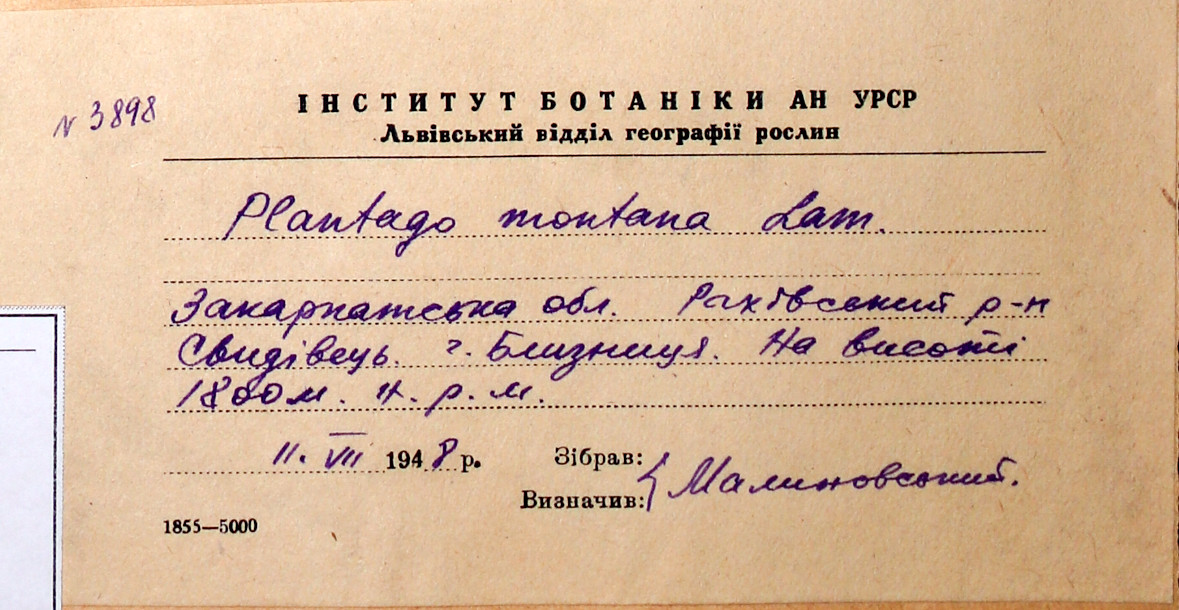 N 3898
ІНСТИТУТ БОТАНІКИ АН УРСР
Львівський відділ географії рослин
Plantago montana Lam.
Закарпатська обл. Рахівський р-н
Свидівець. г. Близниця. На висоті
1800м. н.р.м.
11. VII 1948 р. Зібрав:
Визначив: Малиновський.
1855—5000